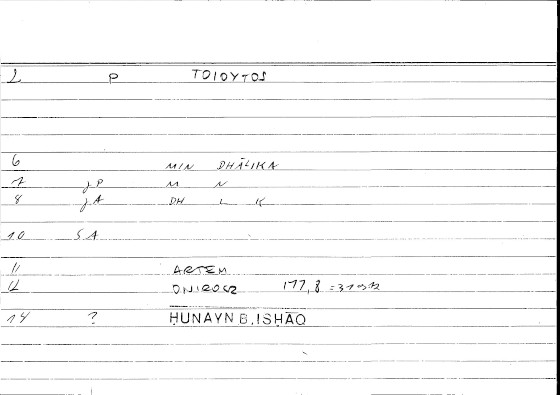 2 P ΤΟΙΟΥΤΟΣ
6 MIN DHĀLIKA
7 JP M N
8 JA DH L K
10 SA
11 ARTEM
12 ONIROCR 177,8
14 ? ḤUNAYN B. ISḤĀQ